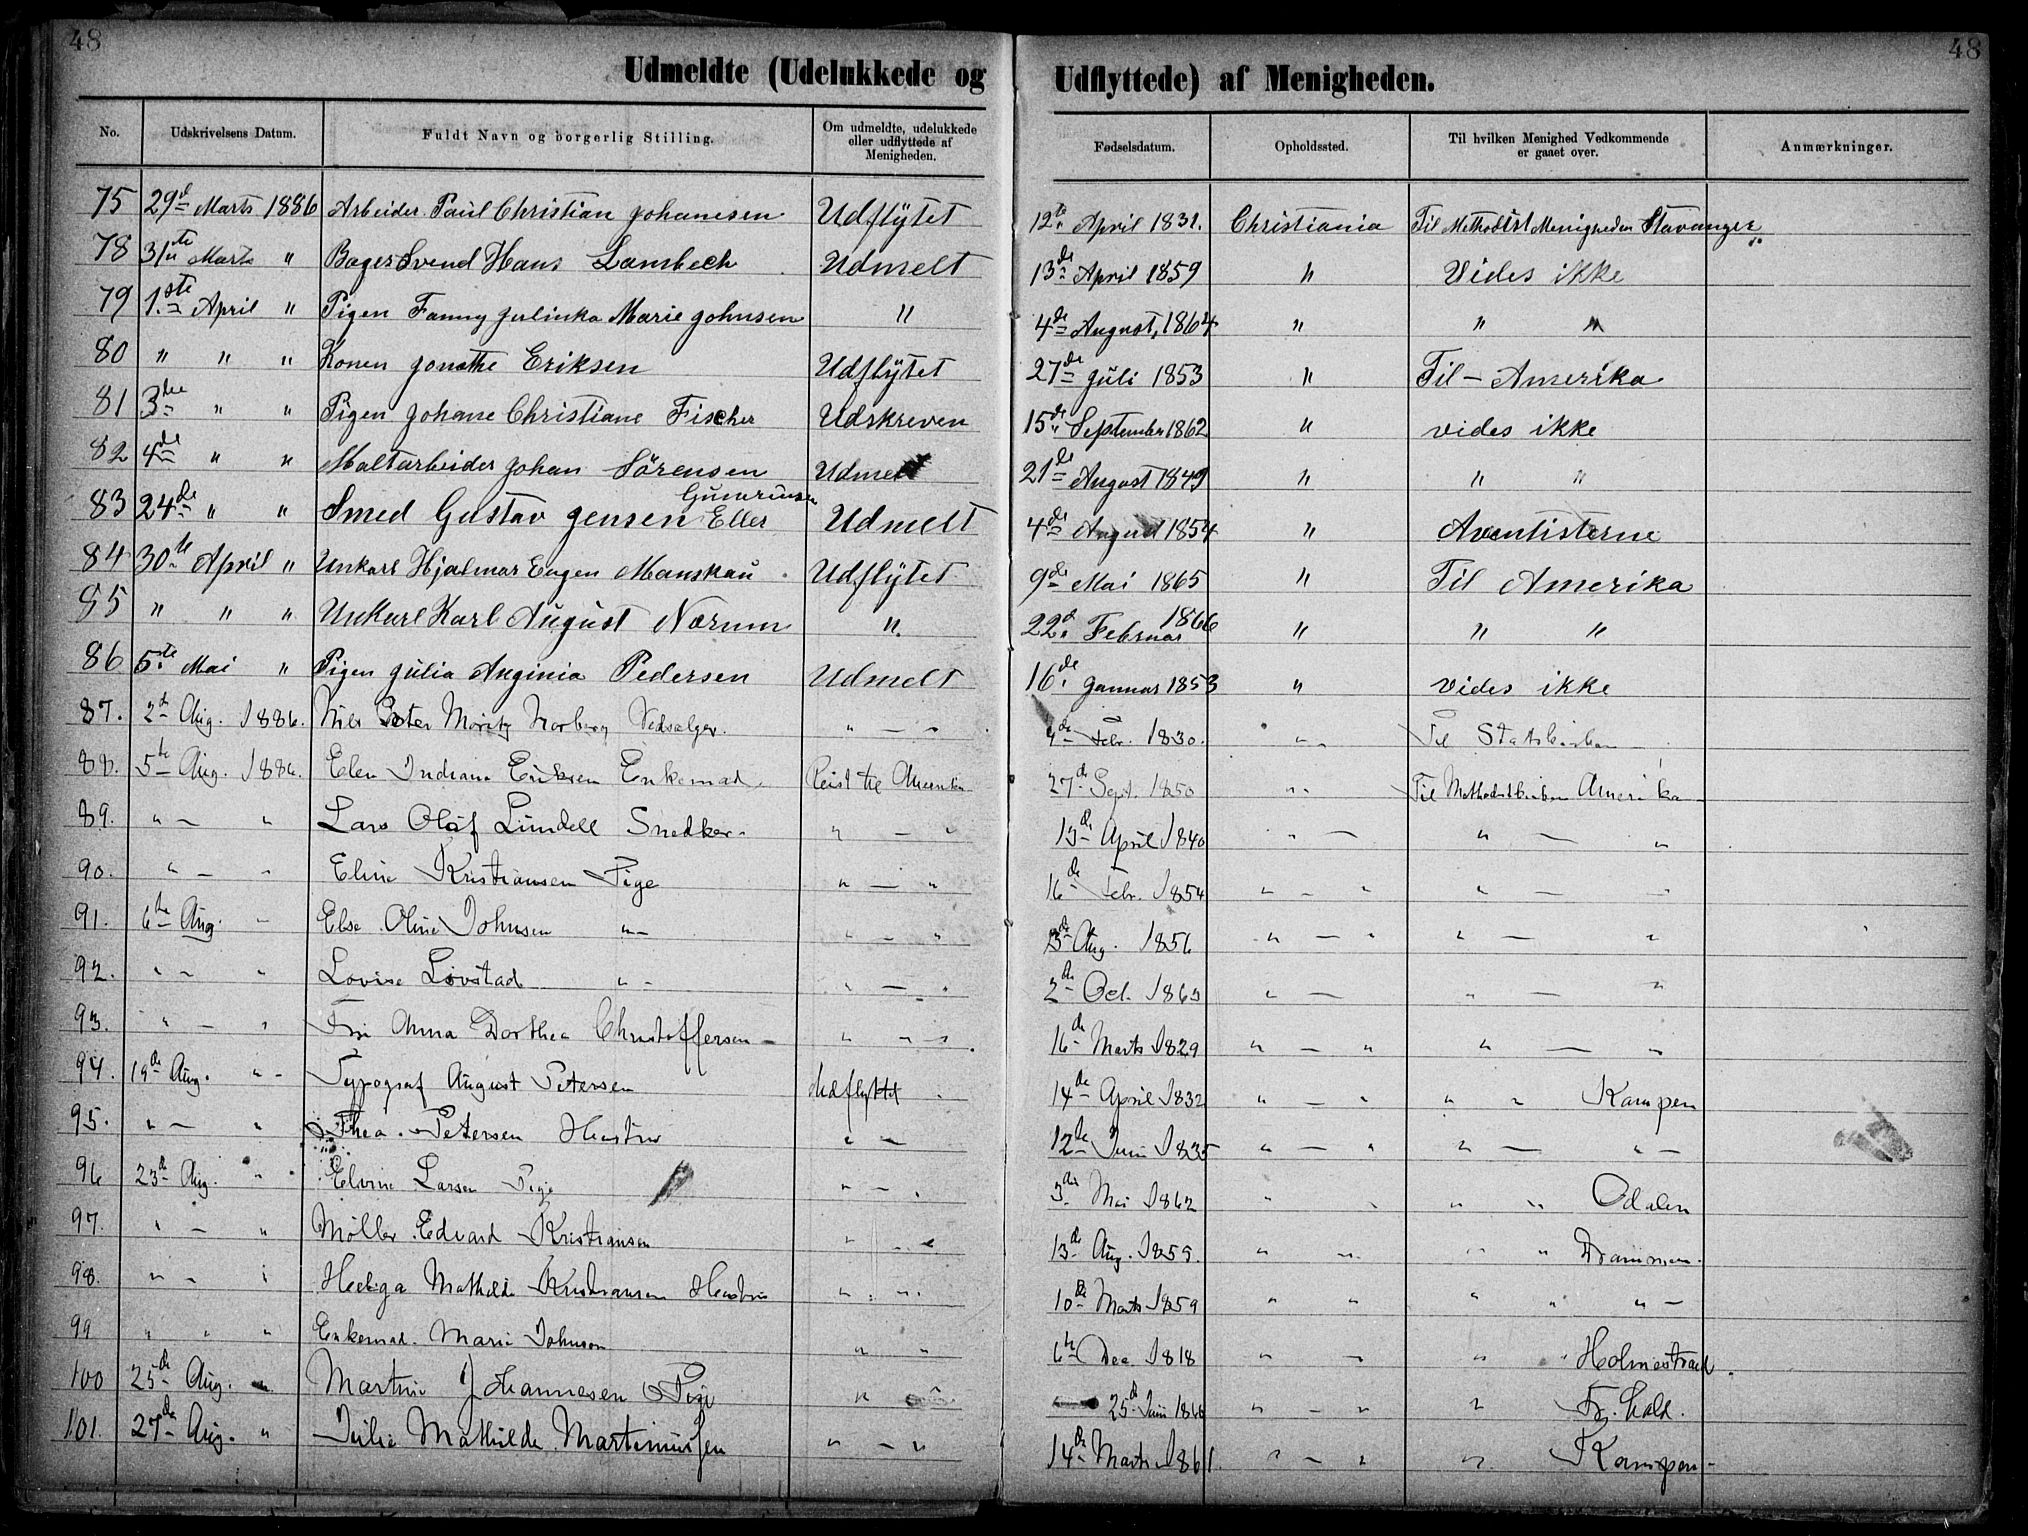 48 48
Udmeldte (Udelukkede og Udflyttede) af Menigheden.
No. Udskrivelsens Datum. Fuldt Navn og borgerlig Stilling. Om udmeldte, udelukkede eller udflyttede af Menigheden. Fødselsdatum. Opholdssted. Til hvilken Menighed Vedkommende er gaaet over. Anmærkninger.
75 29d Marts 1886 Arbeider Paul Christian Johanesen Udflÿtet 12te April 1831. Christiania Til Methodist Menigheden Stavanger
78 31te Marts " Bager Svend Hans Lambech Udmelt 13de April 1859 " Vides ikke
79 1ste April " Pigen Fanny Julinka Marie Johnsen " 4de August, 1864 " " "
80 " " " Konen Jonethe Eriksen Udflÿtet 27de Juli 1853 " Til - Amerika
81 3die " " Pigen Johane Christiane Fischer Udskreven 15de September 1862 " vides ikke
82 4de " " Maltarbeider Johan Sörensen Udmelt 21de August 1849 " " "
83 24de " " Smed Gustav Jensen Eller Udmelt 4de August 1854 " Aventisterne
84 30te April " Unkarl Hjalmar Eugen Manskau Udflÿtet 9de Mai 1865 " Til Amerika
85 " " " Unkarl Karl August Nærum " 22d Februar 1866 " " "
86 5te Mai " Pigen Julia Auginia Pedersen Udmelt 16de Januar 1853 " vides ikke
87. 2d Aug. 1886. Nils Peter Moritz Norberg Vedsælger. " - " 4de Febr. 1830. " - Til Statskirken
88. 5te Aug. 1886. Elen Indiana Eriksen Enkemad. Reist til Amerika 27de Sept. 1850 " " Til Methodistkirken Amerika
89. " - " Lars Olaf Lundell Snedker - " - " 13de April 1840 " - " - "
90. " - " Eline Kristiansen Pige " - " 16de Febr. 1854 " - " " - "
91. 6te Aug. " Else Oline Johnsen " - " - " 3de Aug. 1856 " - " " - "
92. " - " Lovise Løvstad " - " - " 2de Oct. 1863 " - " - "
93. " - " Fru Anna Dorthea Christoffersen - " - " 16de Marts 1829 " - " " - "
94. 19de Aug. " - Typograf August Petersen Udflyttet 14de April 1832 " - " " " Kampen
95. " - " Thea Petersen Hustru " - 12te Juni 1835 " - " " - " -
96 23de Aug. " Elvine Larsen Pige " - " 3die Mai 1862 " " " " Odalen
97. " - " Møller Edvard Kristiansen " - " 13de Aug. 1859. " " " " Drammen.
98. " - " Helga Mathilde Kristiansen Hustru " " 10de Marts 1859 " " " " " -
99 " " " Enkemad. Marie Johnson " " 6te Dec. 1818 " " " " Holmestrand.
100 25de Aug. " Martine Johannesen Pige " " 25de Juni 1866 " - " " Fr. hald.
101. 27de Aug. " Julie Mathilde Martiniussen " - " 14de Marts 1861. " - " " Kampen -